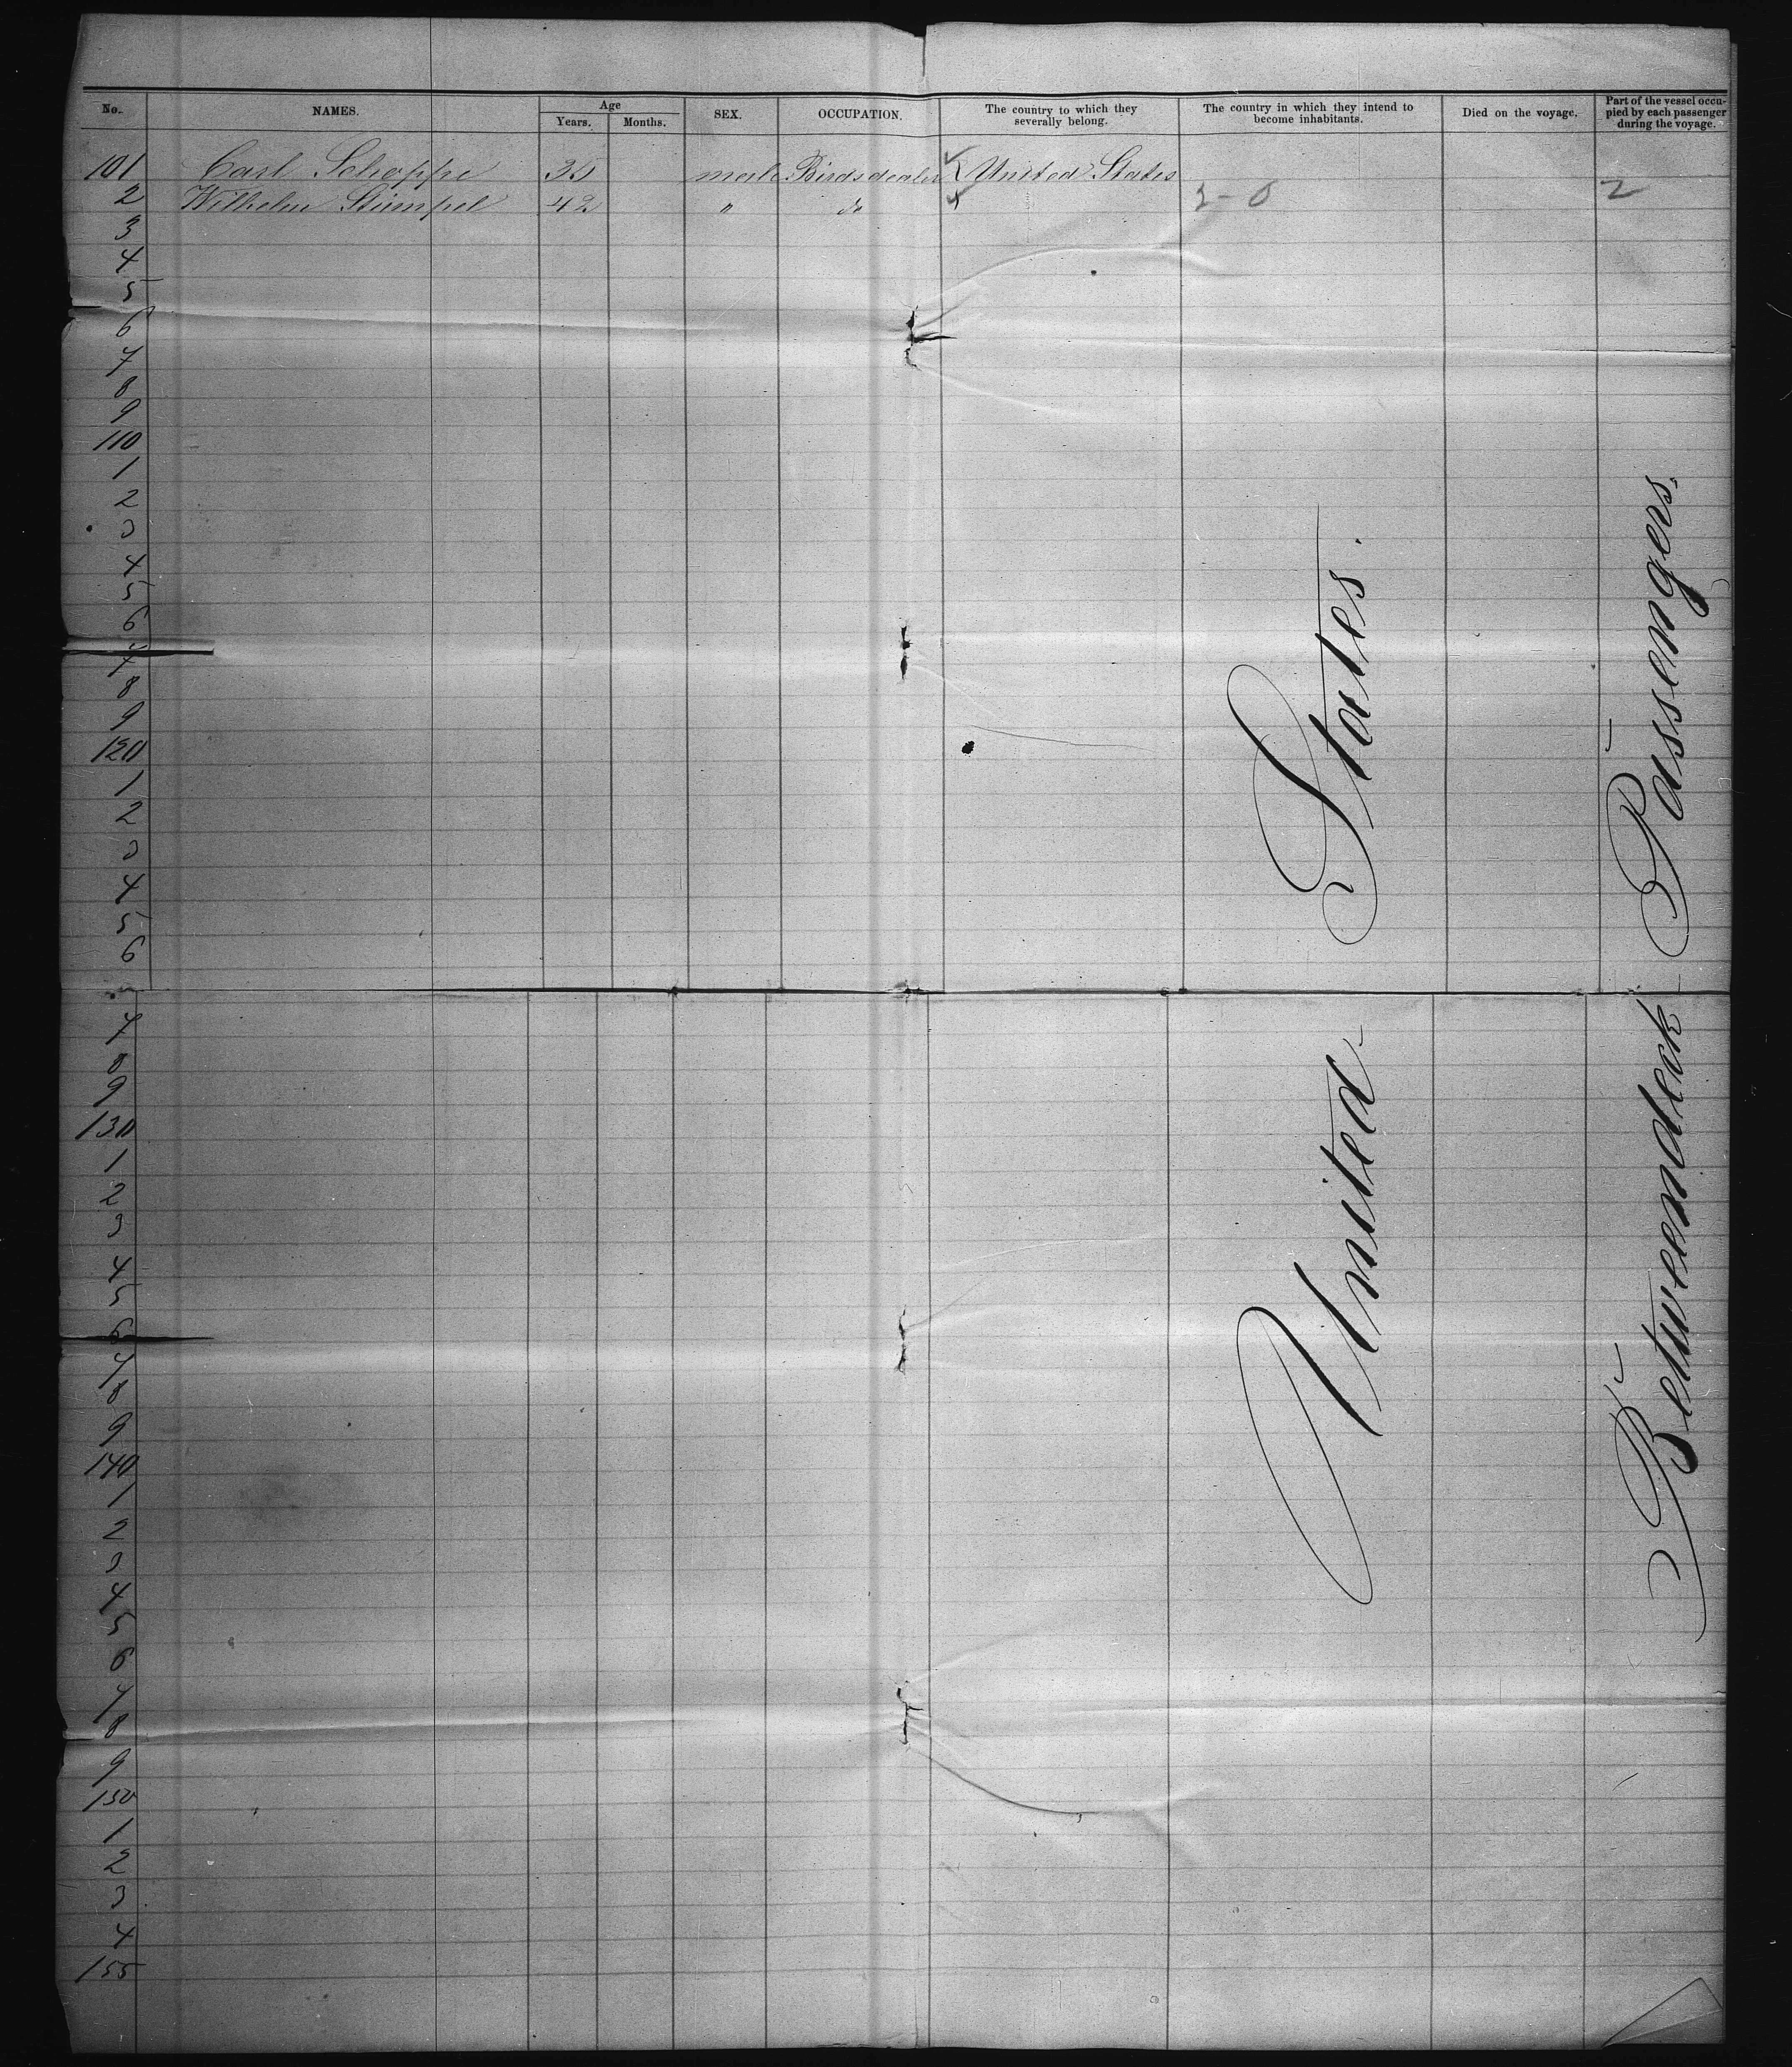 No. NAMES. Age SEX. OCCUPATION. The country to which they severally belong. The country in which they intend to become inhabitants. Died on the voyage. Part of the vessel occupied by each passenger during the voyage.
Years. Months.
101 Carl Schoppe 35 male Birdsdealer United States
2 Wilhelm Stümpel 42 " do 2-0 2
3
4
5
6
7
8
9
110
1
2
3
4
5
6
7
8
9
120
1
2
3
4
5
6
7
8
9
130
1
2
3
4
5
6
7
8
9
140
1
2
3
4
5
6
7
8
9
150
1
2
3
4
155
United States.
Betweendeck Passengers.